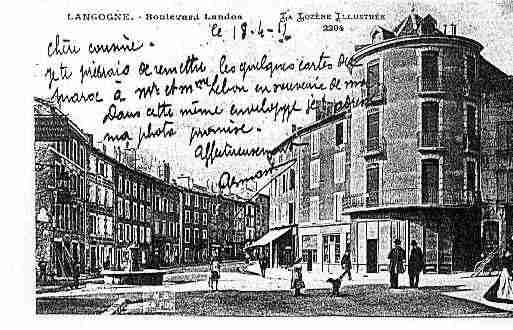 LANGOGNE. - Boulevard Landos
LA LOZÈRE ILLUSTRÉE
2204
le 18-4-
chère cousine.
je te prierais de remettre les quelques cartes de
maroc à Mr et Mme Lebon en souvenir de
Dans cette même enveloppe je
ma photo promise.
Affectueusement
Armand